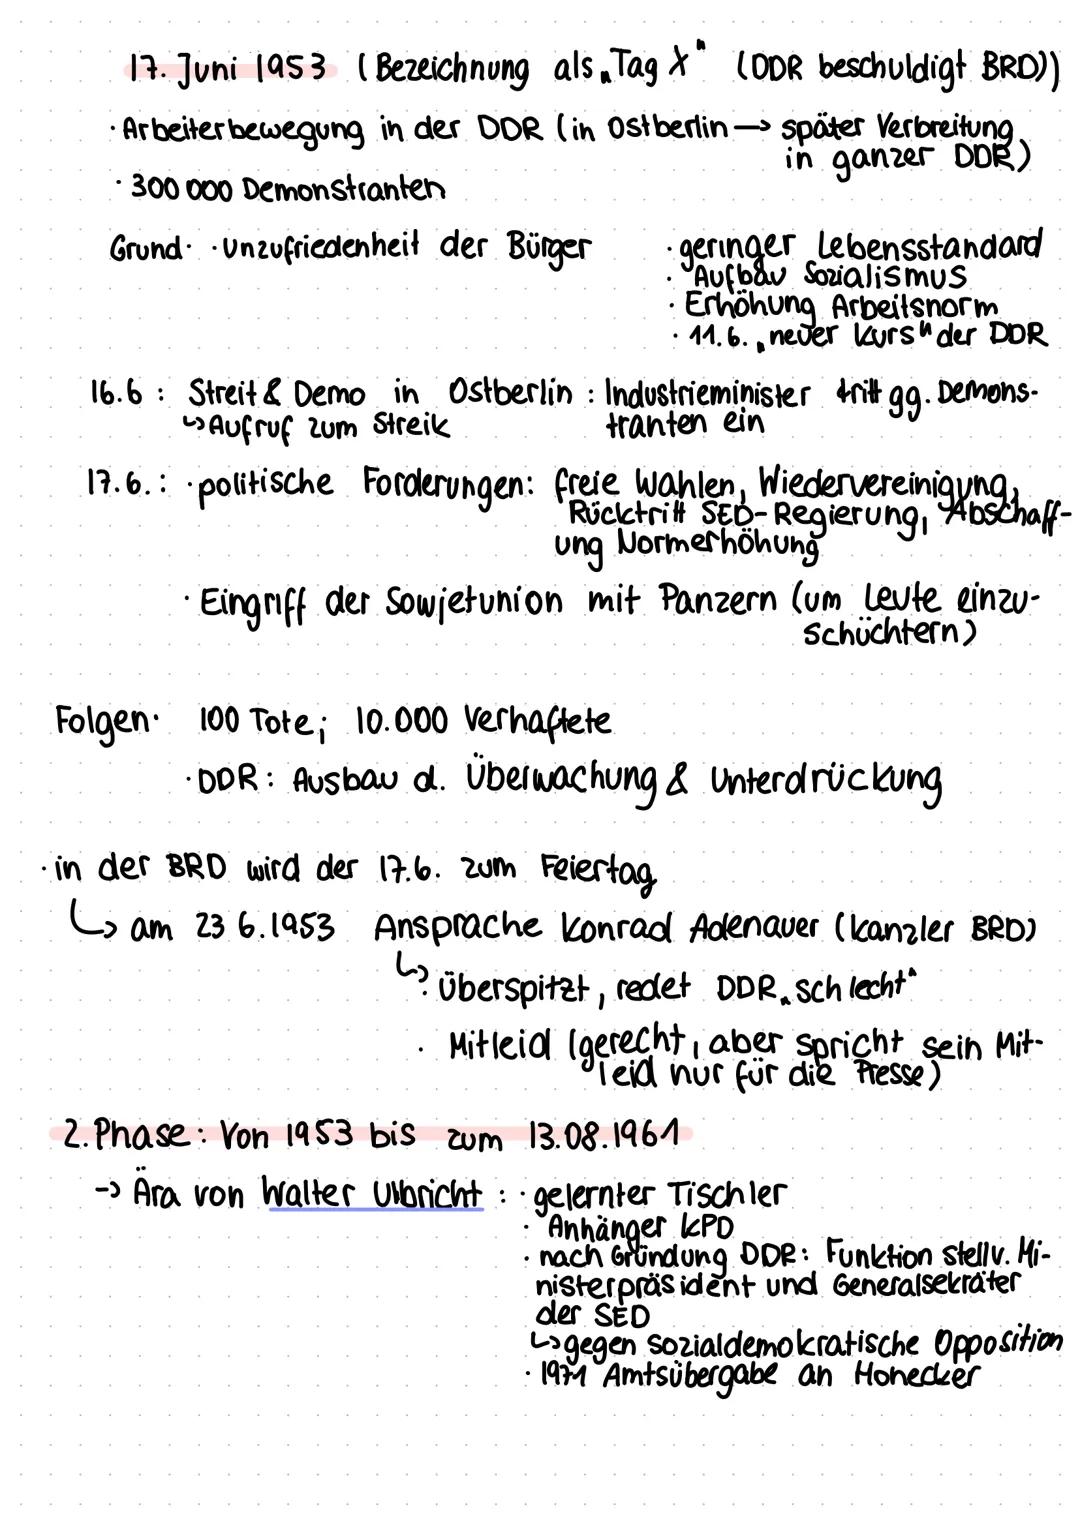 17. Juni 1953 (Bezeichnung als „Tag X" (DDR beschuldigt BRD))
· Arbeiterbewegung in der DDR (in Ostberlin → später Verbreitung
in ganzer DDR)
· 300 000 Demonstranten
Grund· · Unzufriedenheit der Bürger
· geringer Lebensstandard
· Aufbau Sozialismus
· Erhöhung Arbeitsnorm
· 11.6. „neuer Kurs" der DDR
16.6 : Streit & Demo in Ostberlin : Industrieminister tritt gg. Demons-
↳ Aufruf zum Streik
tranten ein
17.6. : · politische Forderungen: freie Wahlen, Wiedervereinigung,
Rücktritt SED-Regierung, Abschaff-
ung Normerhöhung
· Eingriff der Sowjetunion mit Panzern (um Leute einzu-
schüchtern)
Folgen· 100 Tote; 10.000 Verhaftete
· DDR: Ausbau d. Überwachung & Unterdrückung
· in der BRD wird der 17.6. zum Feiertag
↳ am 23 6.1953 Ansprache Konrad Adenauer (Kanzler BRD)
↳ · überspitzt, redet DDR „schlecht"
· Mitleid (gerecht, aber spricht sein Mit-
leid nur für die Presse)
2. Phase: Von 1953 bis zum 13.08.1961
→ Ära von Walter Ulbricht : · gelernter Tischler
· Anhänger KPD
· nach Gründung DDR: Funktion stellv. Mi-
nisterpräsident und Generalsekräter
der SED
↳ gegen sozialdemokratische Opposition
· 1971 Amtsübergabe an Honecker